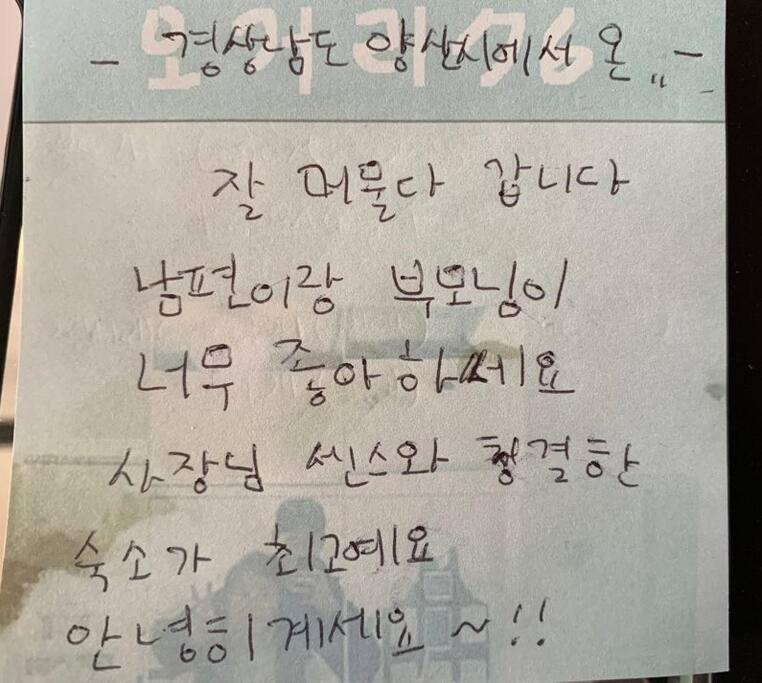 - 경상남도 양산시에서 온 ,, -
잘 머물다 갑니다
남편이랑 부모님이
너무 좋아하세요
사장님 센스와 청결한
숙소가 최고예요
안녕히계세요 ~!!